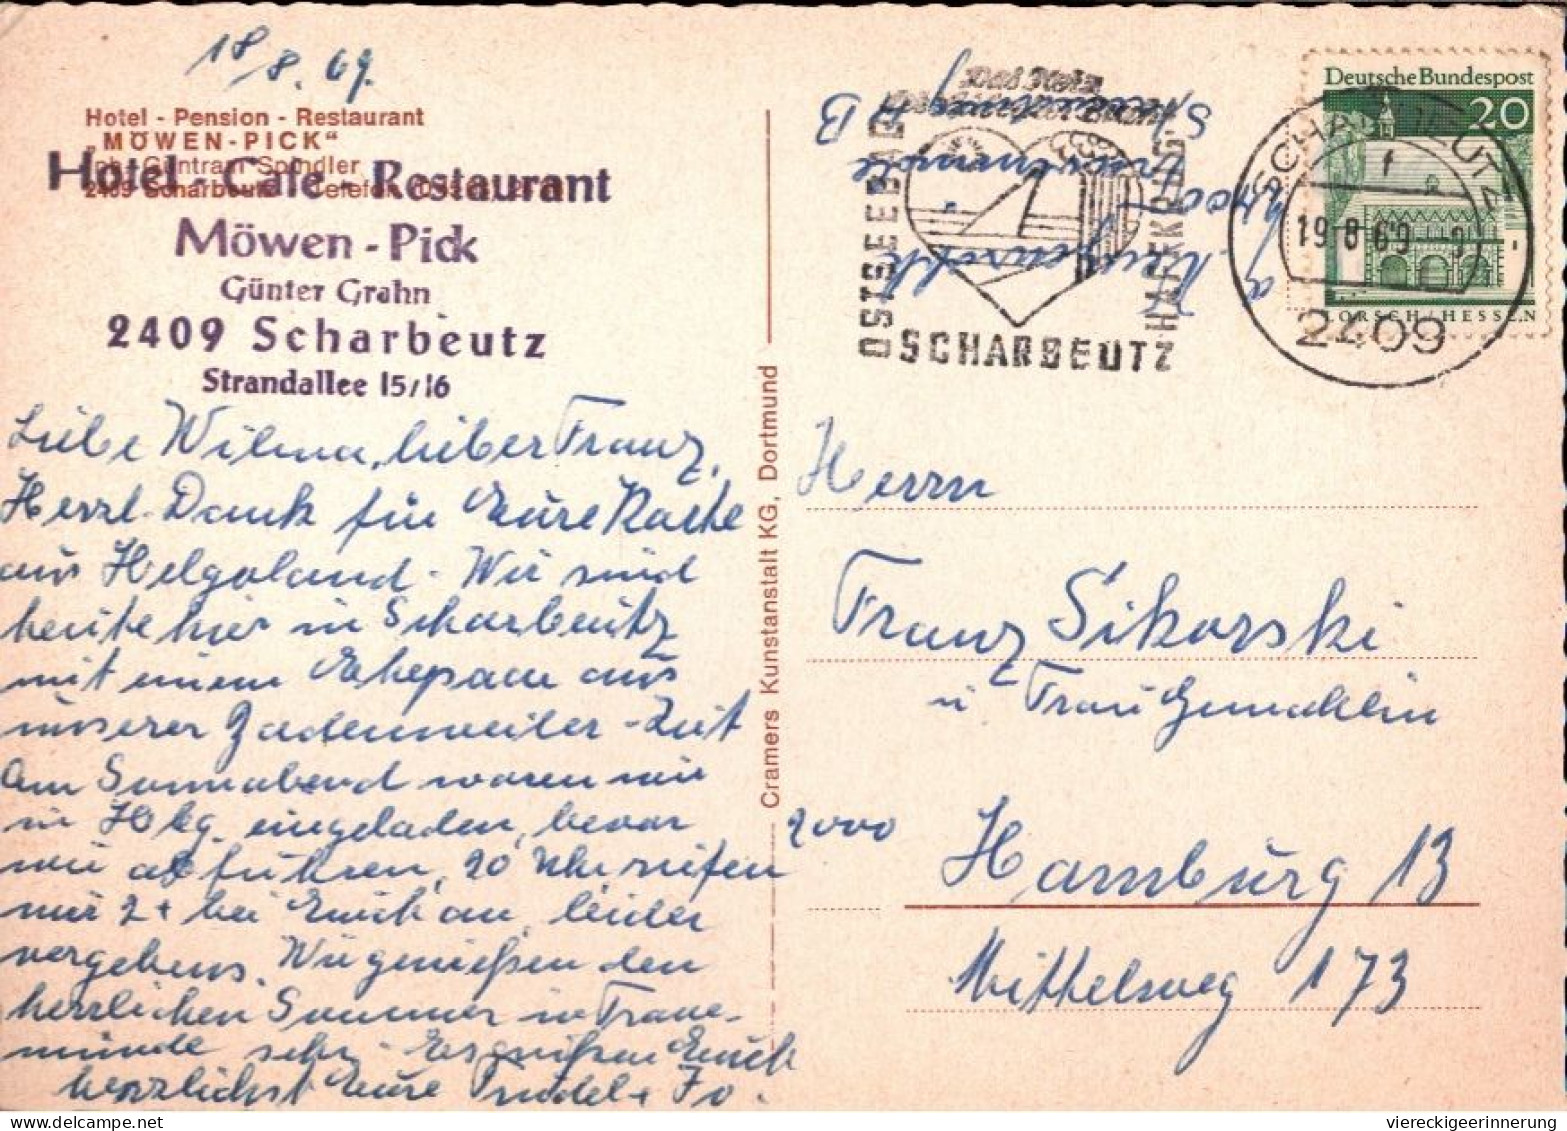 18/8.69.
Hotel - Pension - Restaurant
„MÖWEN-PICK“
Inh. Guntram Spindler
2409 Scharbeutz Telefon
Hotel - Cafe - Restaurant
Möwen - Pick
Günter Grahn
2409 Scharbeutz
Strandallee 15/16
Liebe Wilma, lieber Franz,
Herzl. Dank für Eure Karte
aus Helgoland. Wir sind
heute hier in Scharbeutz
mit einem Ehepaar aus
unserer Badenweiler-Zeit
Am Sonnabend waren wir
in Hbg. eingeladen, bevor
wir abfuhren, 20 Uhr riefen
wir 2 + bei Euch an, leider
vergebens. Wir genießen den
herrlichen Sommer in Trave-
münde sehr.
herzlichst Eure Trudel +
Cramers Kunstanstalt KG, Dortmund
Travemünde
OSTSEEBAD
SCHARBEUTZ
HAFFKRUG
Deutsche Bundespost
20
LORSCH / HESSEN
SCHARBEUTZ
f
19.8.69 - 9
2409
Herrn
Franz Sikorski
u. Frau Gemahlin
2000 Hamburg 13
Mittelweg 173
viereckigeerinnerung